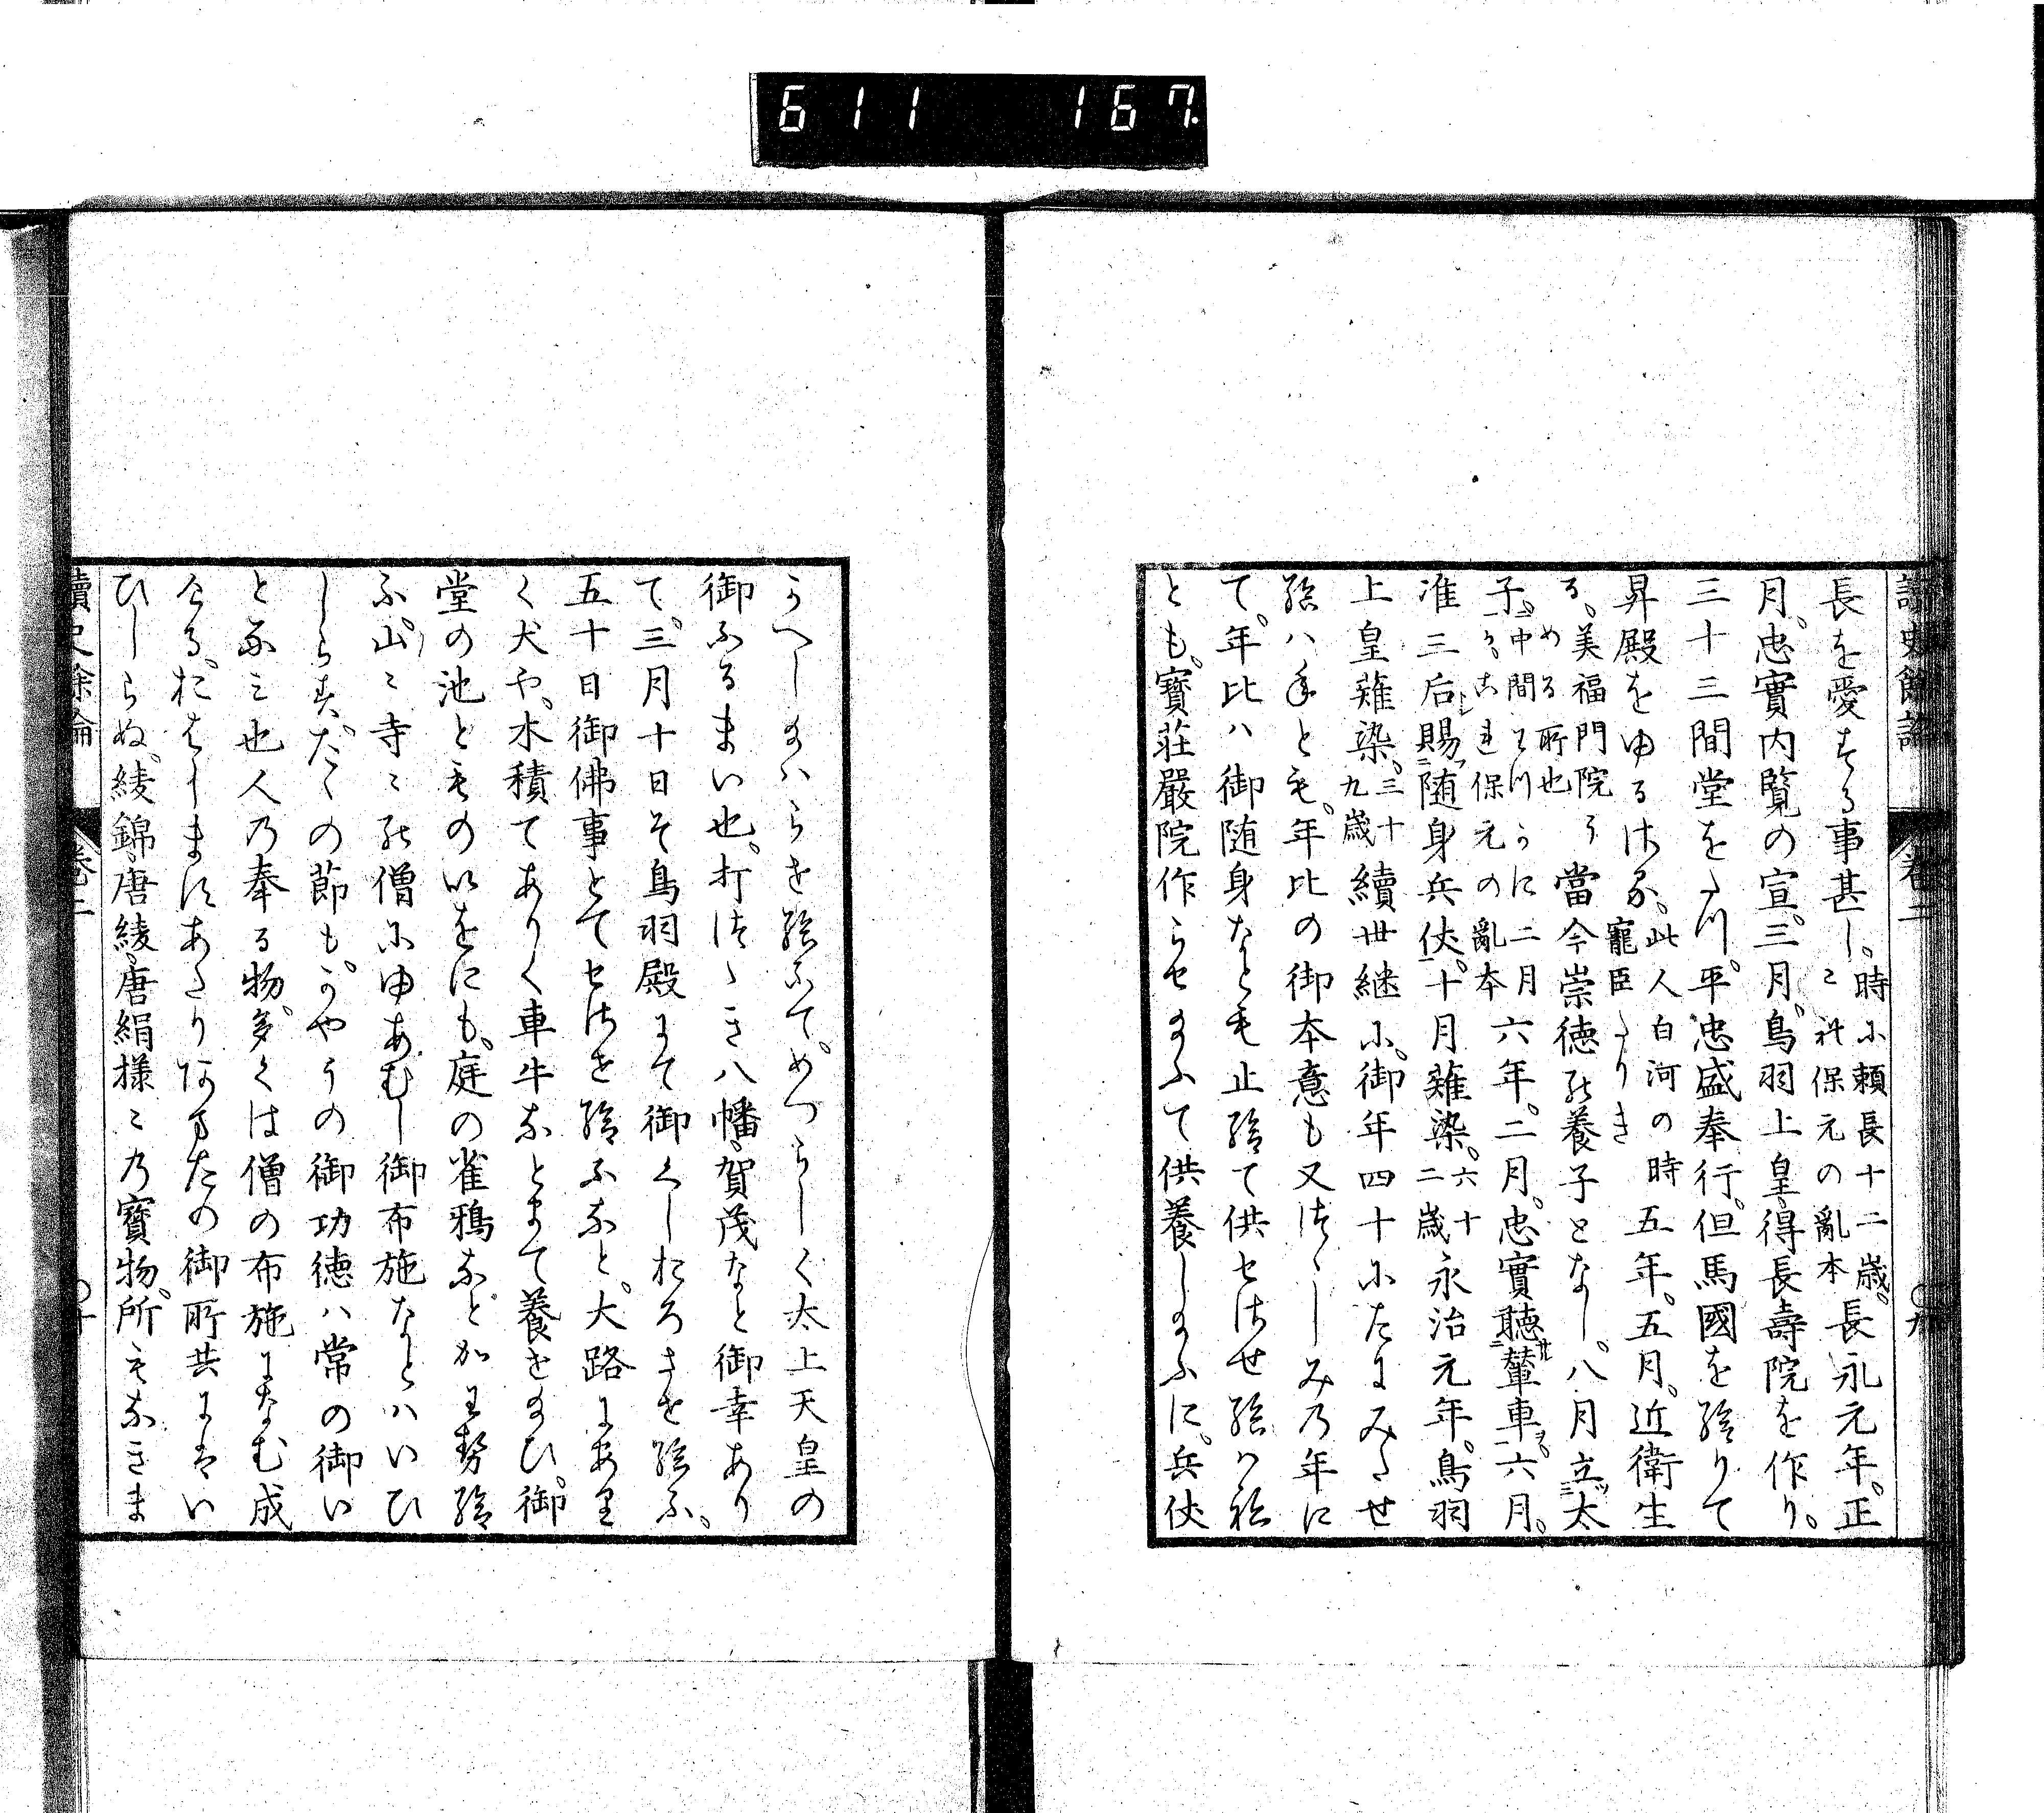 611 167
讀史餘論 卷二 〇九
長を愛する事甚し。時に頼長十二歳。長永元年。正
これ保元の亂本
月。忠實内覽の宣。三月。鳥羽上皇。得長壽院を作り。
三十三間堂をたつ。平忠盛奉行。但馬國を給りて
昇殿をゆるさる。此人白河の時五年。五月。近衛生
寵臣たりき
る。美福門院
める所也 當今崇徳の養子となし。八月立太
子。中間
これ保元の亂本 二月六年。二月。忠實聽輦車。六月。
准三后賜随身兵仗。十月薙染。六十二歳永治元年。鳥羽
上皇薙染。三十九歳續世継に。御年四十にたにみたせ
給はねとも。年比の御本意も又つゝしみの年に
て。年比は御随身なとも止給て供せさせ給はね
とも。寳荘嚴院作らせ給ふて供養し給ふに。兵仗
うへしはらを給ふて。めつらしく太上天皇の
御ふるまい也。打つゝき八幡賀茂なと御幸あり
て。三月十日そ鳥羽殿にて御くしおろさせ給ふ。
五十日御佛事とてせさせ給ふなと。大路にある
く犬や。水積てありく車牛なとまて養せ給ひ。御
堂の池ともの以をにも。庭の雀鴉なとかは勢給
ふ。山々寺々の僧にゆあむし御布施なとはいひ
しらす。たゝの節も。かやうの御功徳は常の御い
となみ也人の奉る物。多くは僧の布施になむ成
ける。おはしますあたりあまたの御所共にはい
ひしらぬ。綾錦。唐綾。唐絹様々の寳物。所もなきま
讀史餘論 卷二 〇十